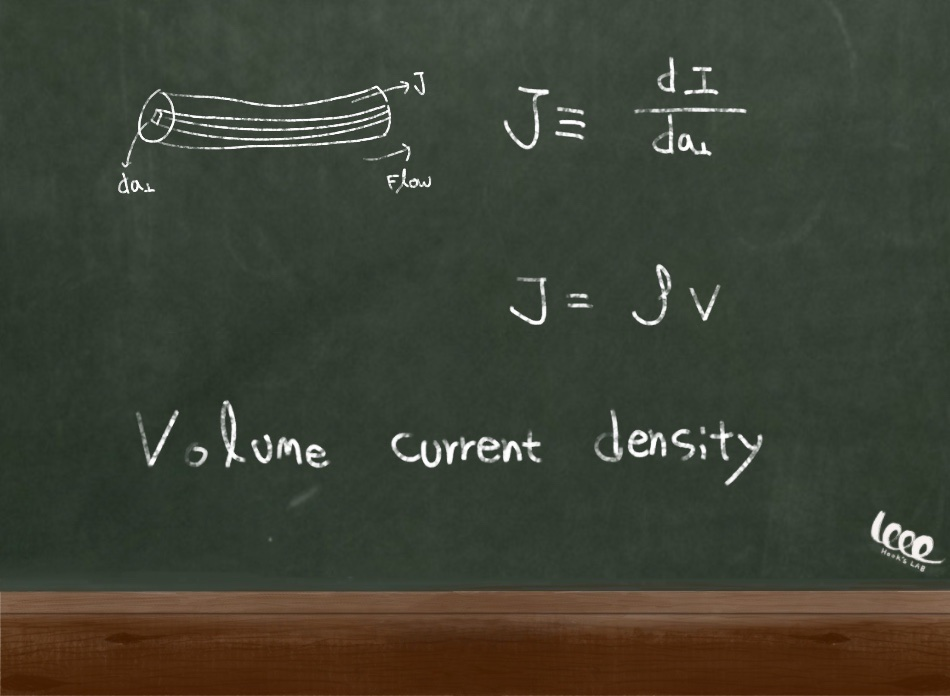 J
da⊥
Flow
J ≡ dI / da⊥
J = ρ v
Volume current density
Hook's LAB